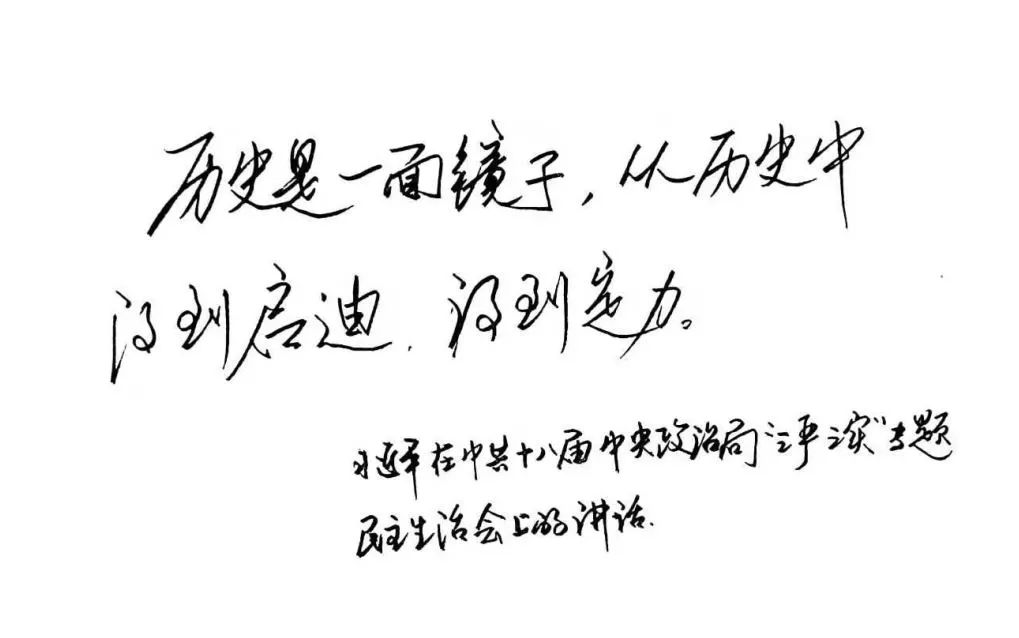 历史是一面镜子，从历史中
得到启迪、得到定力。
习近平在中共十八届中央政治局“三严三实”专题
民主生活会上的讲话.